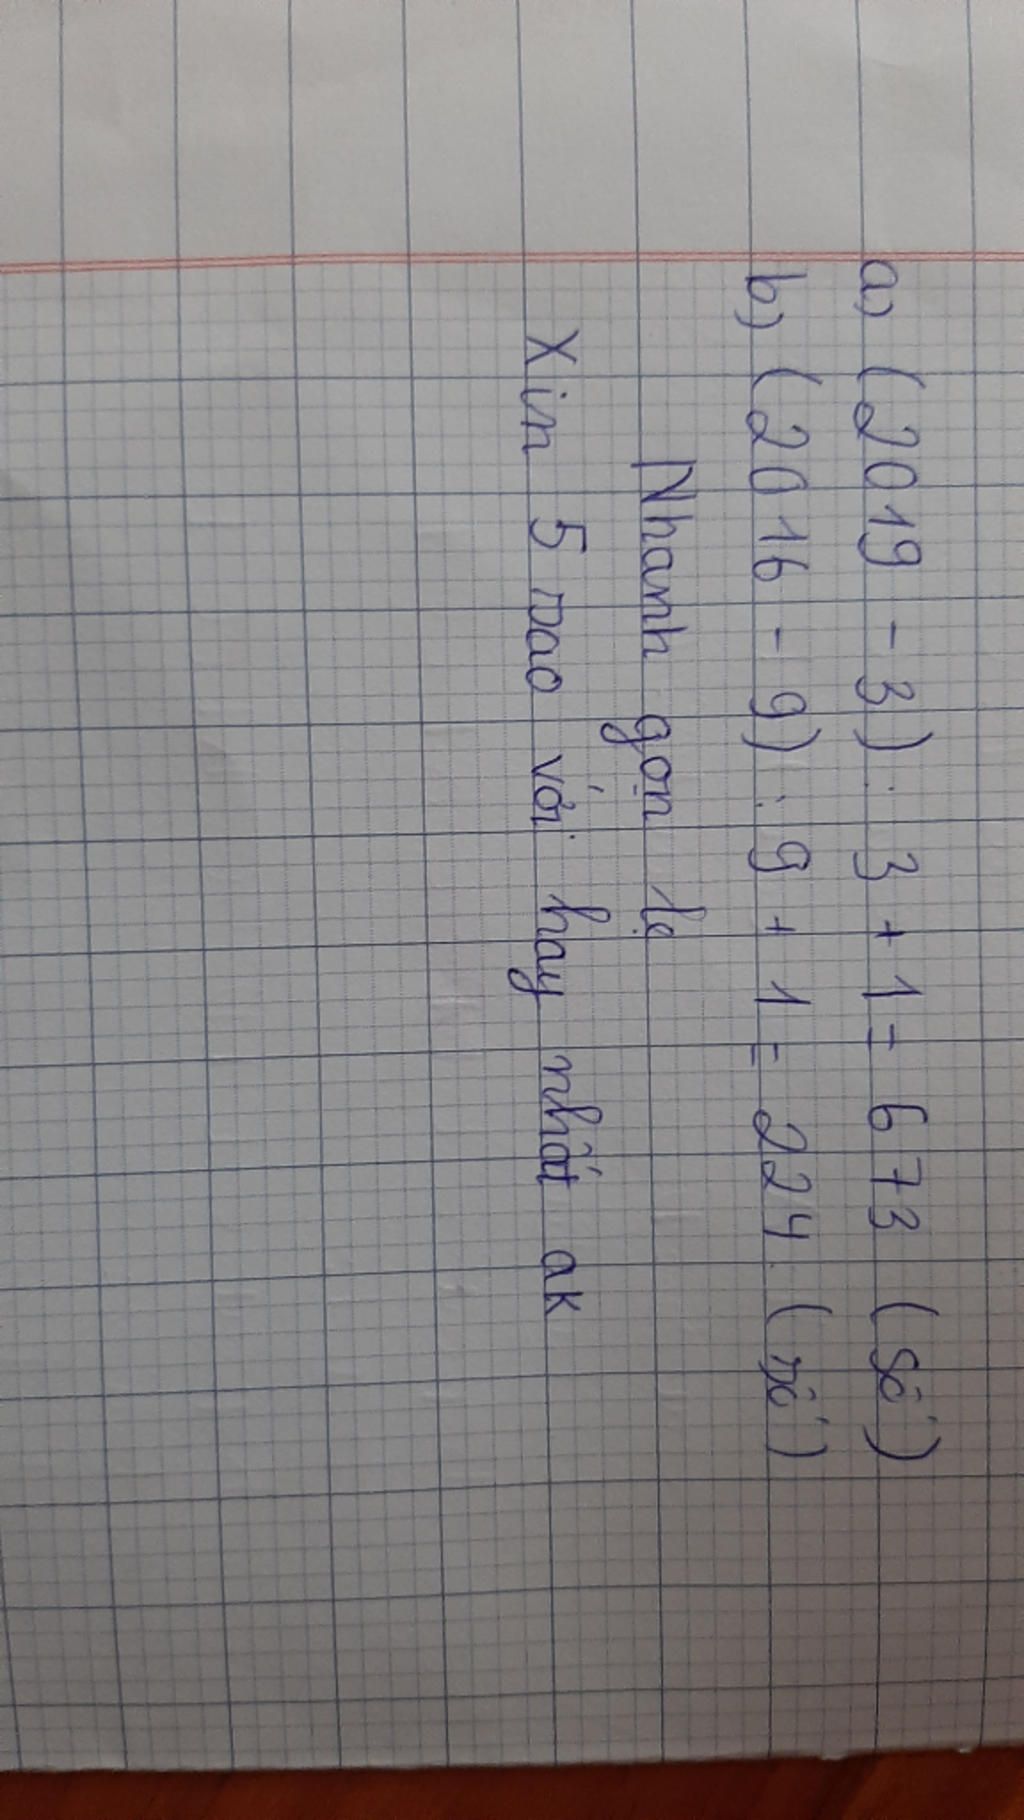 a) (2019 - 3) : 3 + 1 = 673 (số)
b) (2016 - 9) : 9 + 1 = 224 (số)
Nhanh gọn lẹ
Xin 5 sao với hay nhất ak